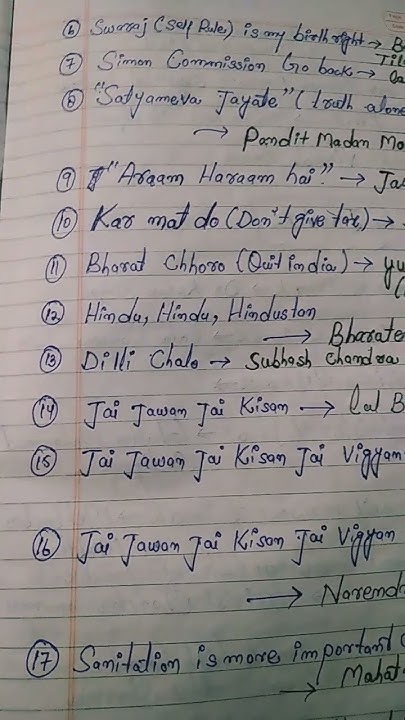 ⑥ Swaraj (Self Rule) is my birth right → B
Til
⑦ Simon Commission Go back →
⑧ "Satyameva Jayate" (truth alone
→ Pandit Madan Mo
⑨ "Araam Haraam hai" → Ja
⑩ Kar mat do (Don't give tax) →
⑪ Bharat Chhoro (Quit india) → yu
⑫ Hindu, Hindu, Hindustan
→ Bharate
⑬ Dilli Chalo → Subhash Chandra
⑭ Jai Jawan Jai Kisan → Lal B
⑮ Jai Jawan Jai Kisan Jai Vigyan
⑯ Jai Jawan Jai Kisan Jai Vigyan
→ Narend
⑰ Sanitation is more important
→ Mahat